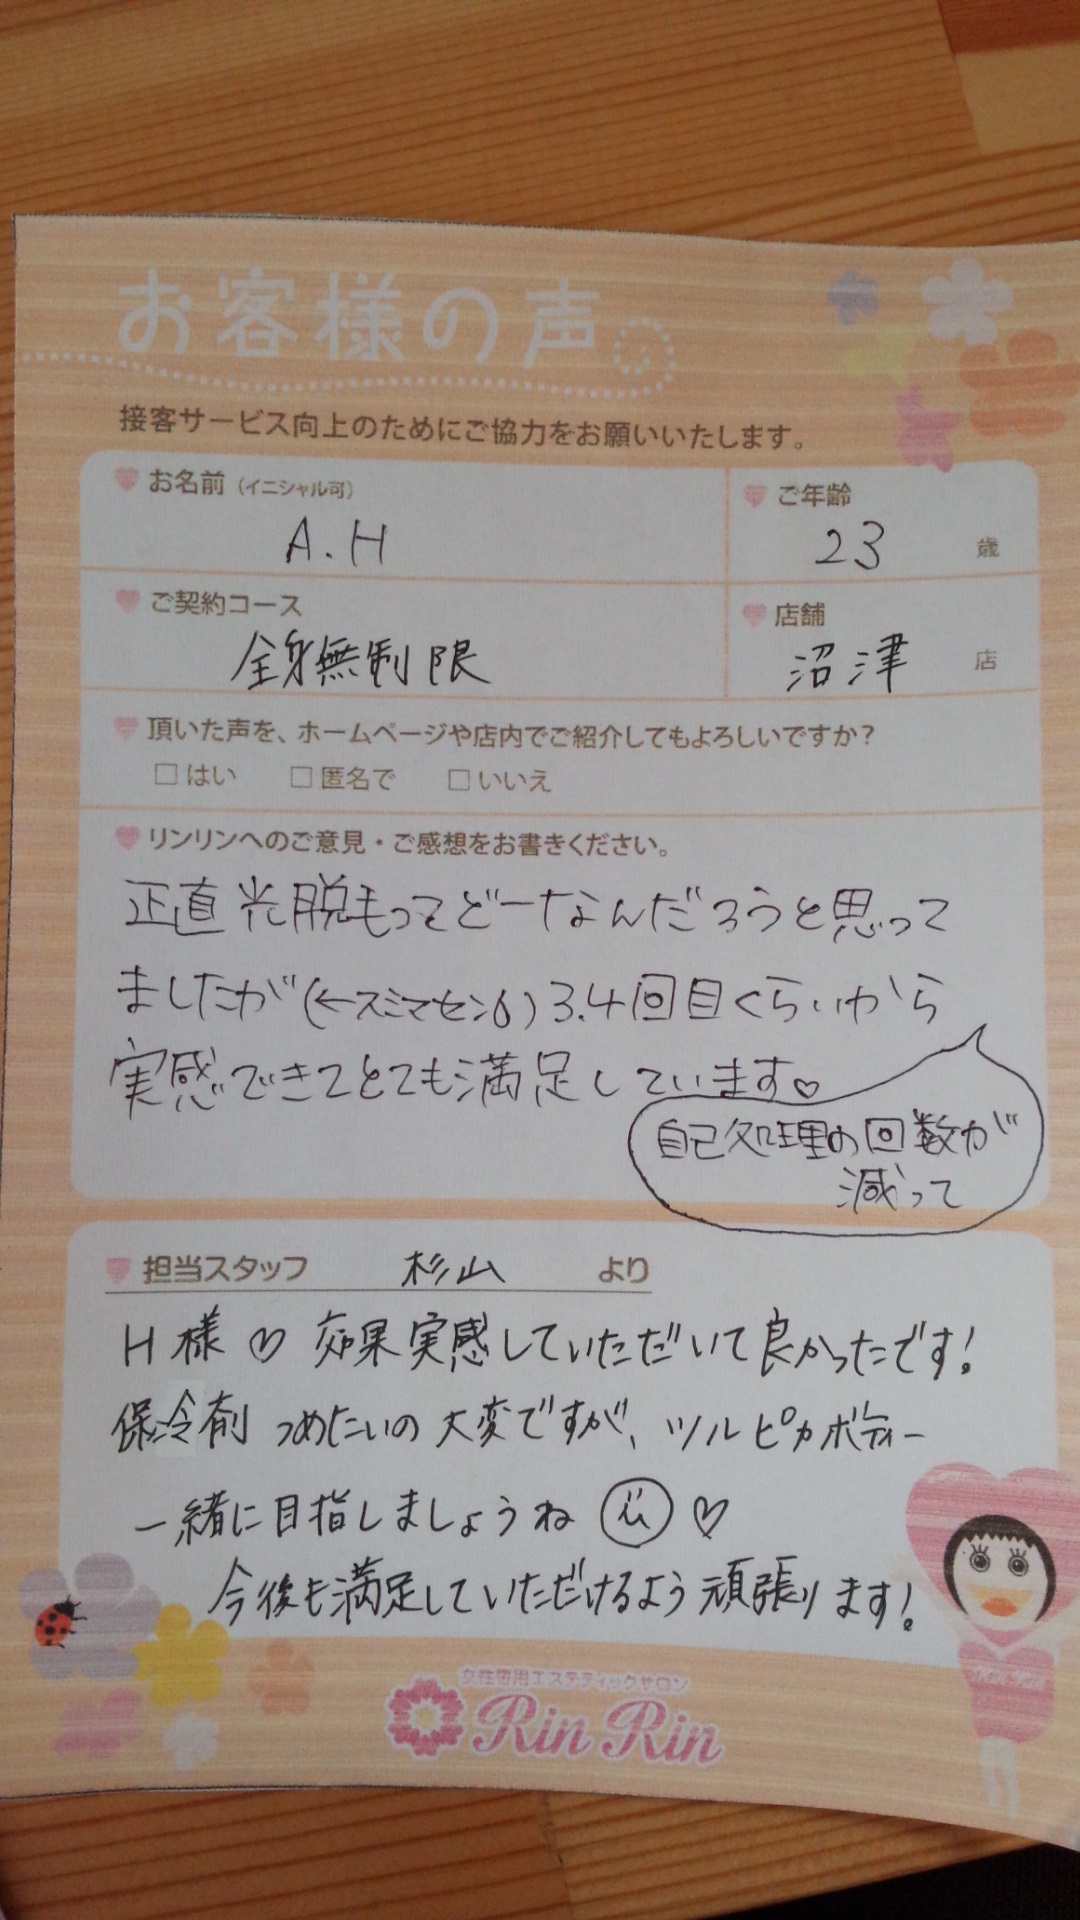 お客様の声。
接客サービス向上のためにご協力をお願いいたします。
お名前（イニシャル可）
A.H
ご年齢
23 歳
ご契約コース
全身無制限
店舗
沼津 店
頂いた声を、ホームページや店内でご紹介してもよろしいですか？
□はい □匿名で □いいえ
リンリンへのご意見・ご感想をお書きください。
正直光脱毛ってどーなんだろうと思って
ましたが(←スミマセン)3.4回目くらいから
実感できてとても満足しています♡
自己処理の回数が
減って
担当スタッフ 杉山 より
H様♡効果実感していただいて良かったです!
保冷剤つめたいの大変ですが、ツルピカボディー
一緒に目指しましょうね♡
今後も満足していただけるよう頑張ります!
女性専用エステティックサロン
Rin Rin